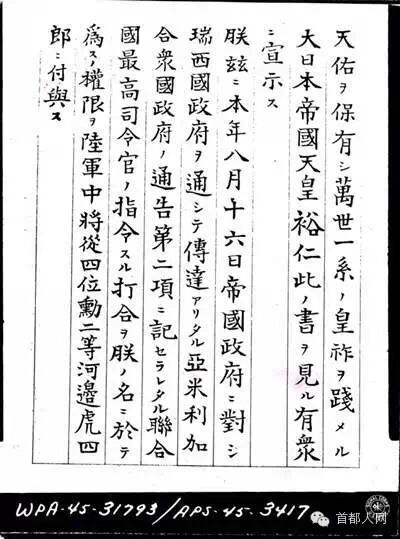 天佑ヲ保有シ萬世一系ノ皇祚ヲ踐メル
大日本帝國天皇裕仁此ノ書ヲ見ル有衆
ニ宣示ス
朕玆ニ本年八月十六日帝國政府ニ對シ
瑞西國政府ヲ通シテ傳達アリタル亞米利加
合衆國政府ノ通告第二項ニ記セラレタル聯合
國最高司令官ノ指令スル打合ヲ朕ノ名ニ於テ
爲スノ權限ヲ陸軍中將從四位勳二等河邊虎四
郎ニ付與ス
WPA-45-31793/APS-45-3417
首都人网